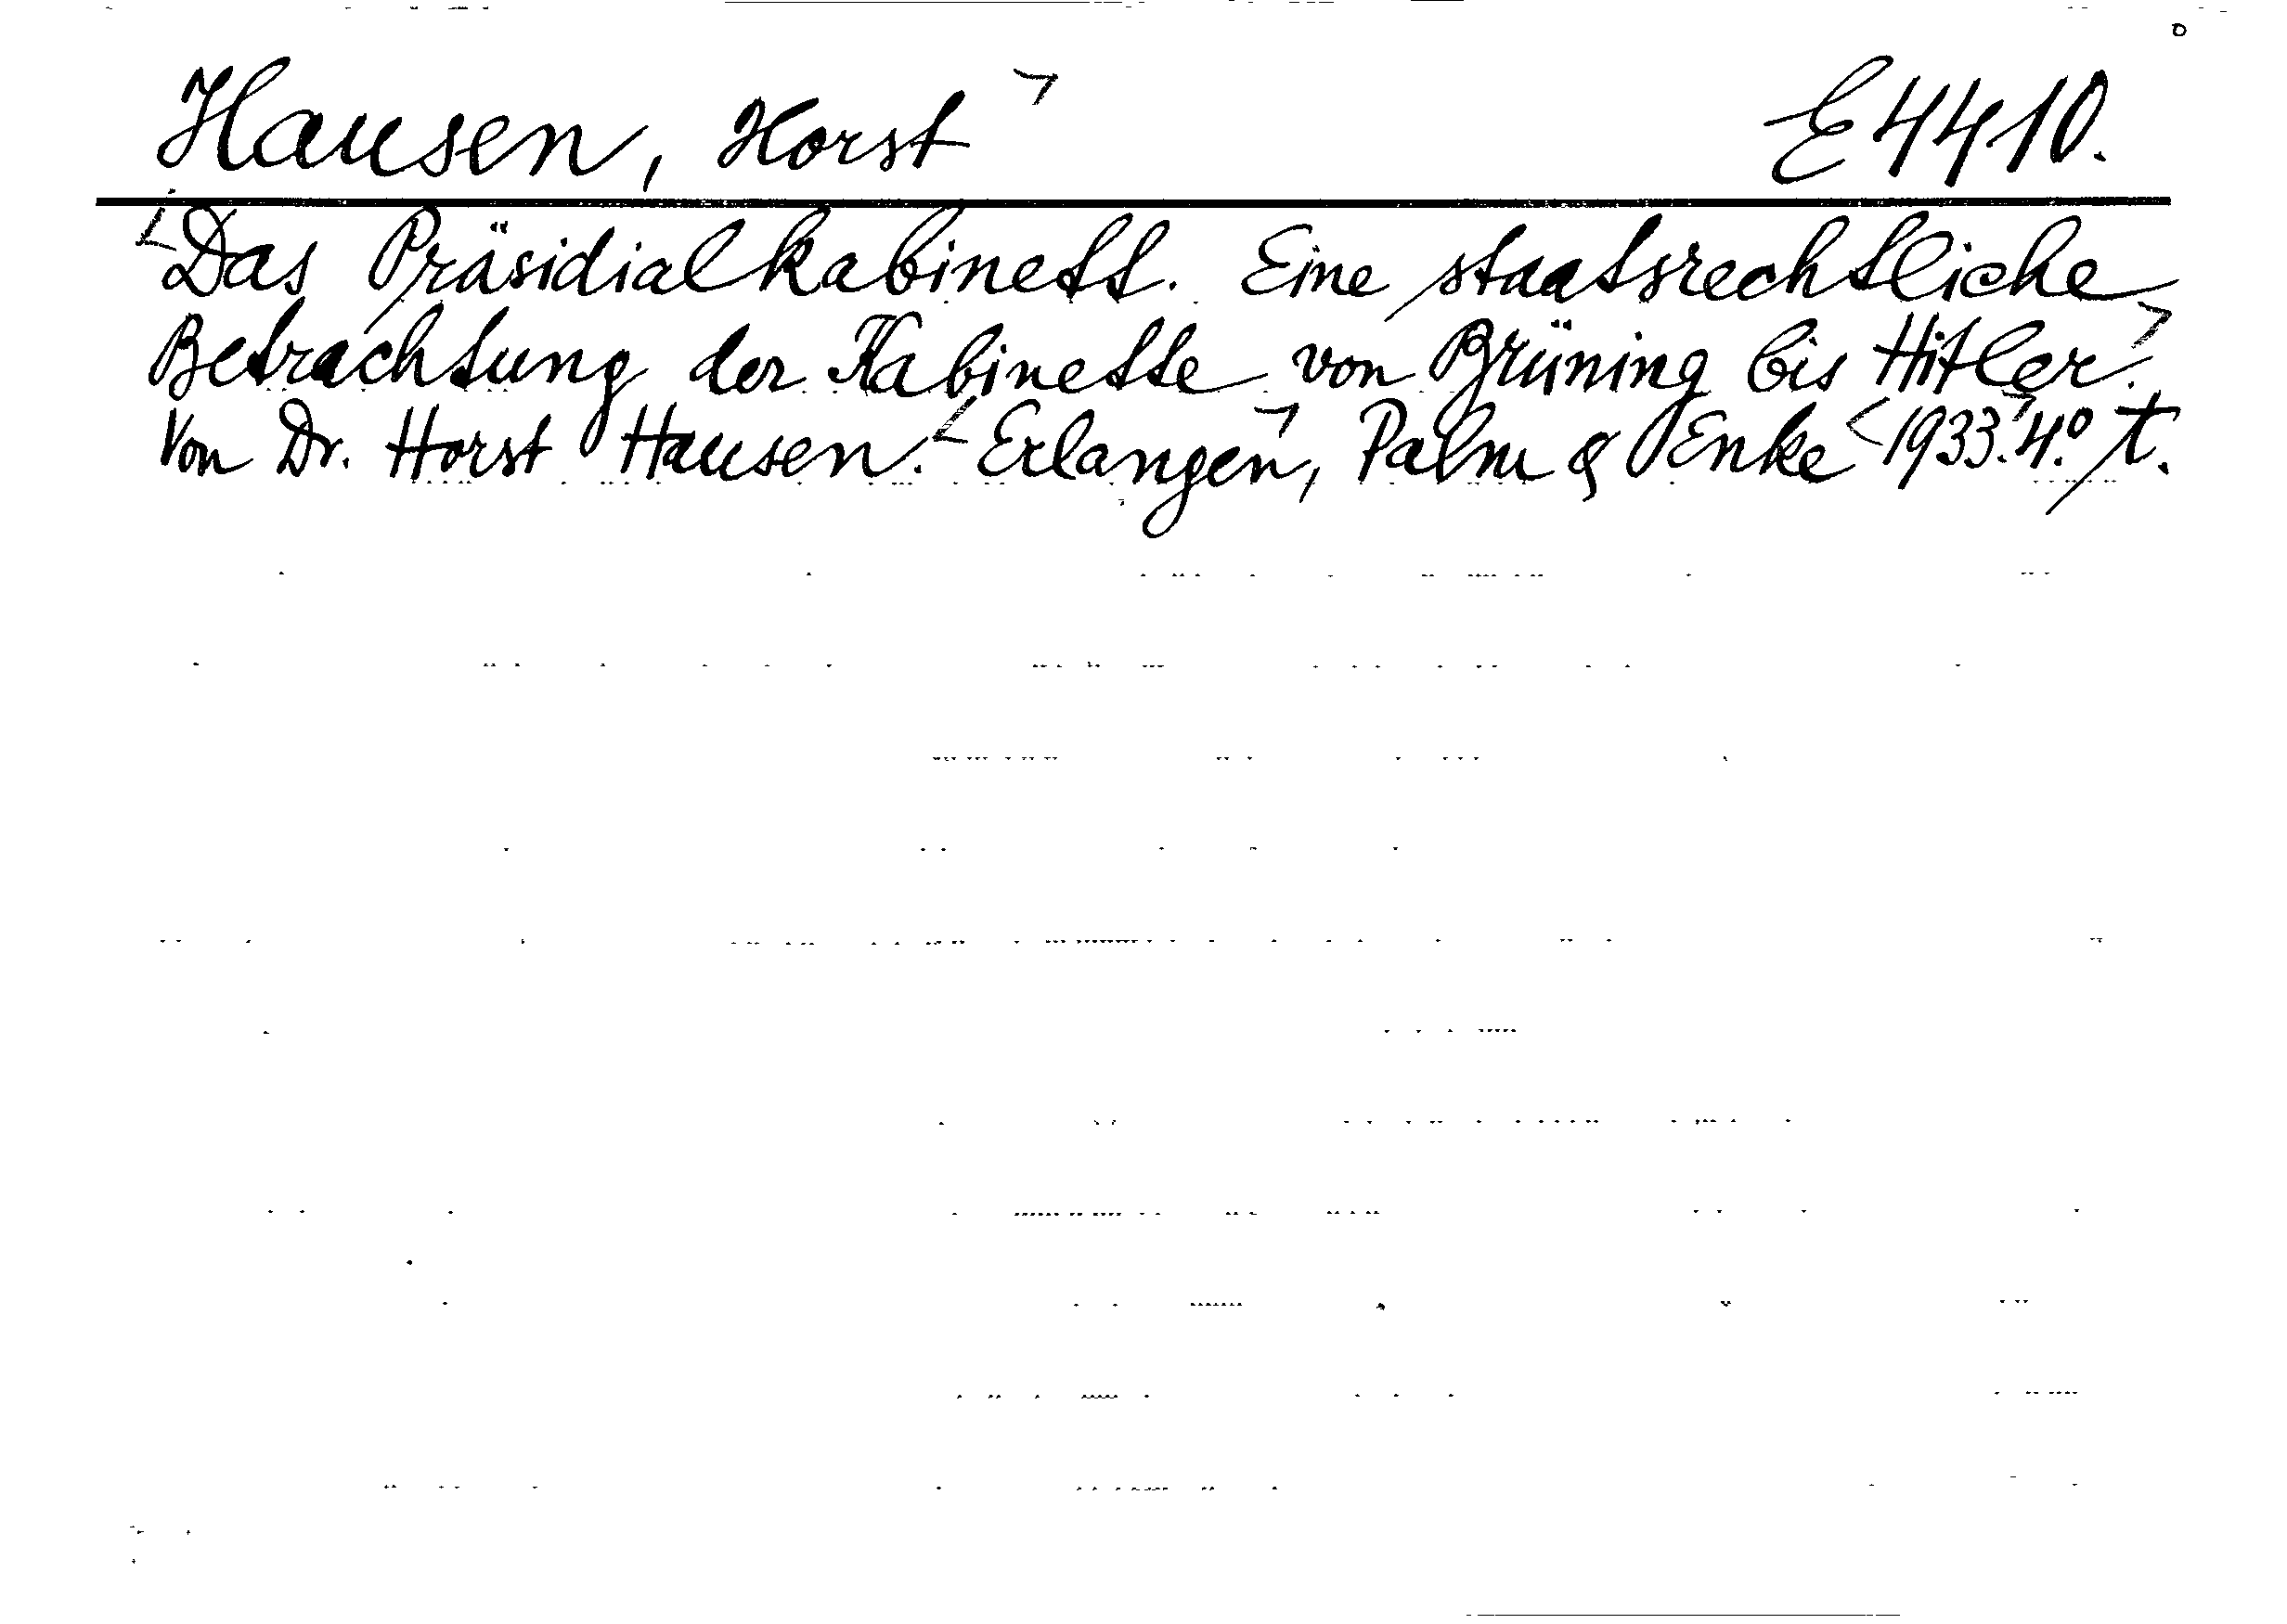 Hausen, Horst E4410.
Das Präsidialkabinett. Eine staatsrechtliche
Betrachtung der Kabinette von Brüning bis Hitler.
Von Dr. Horst Hausen. Erlangen, Palm & Enke 1933. 4° t.